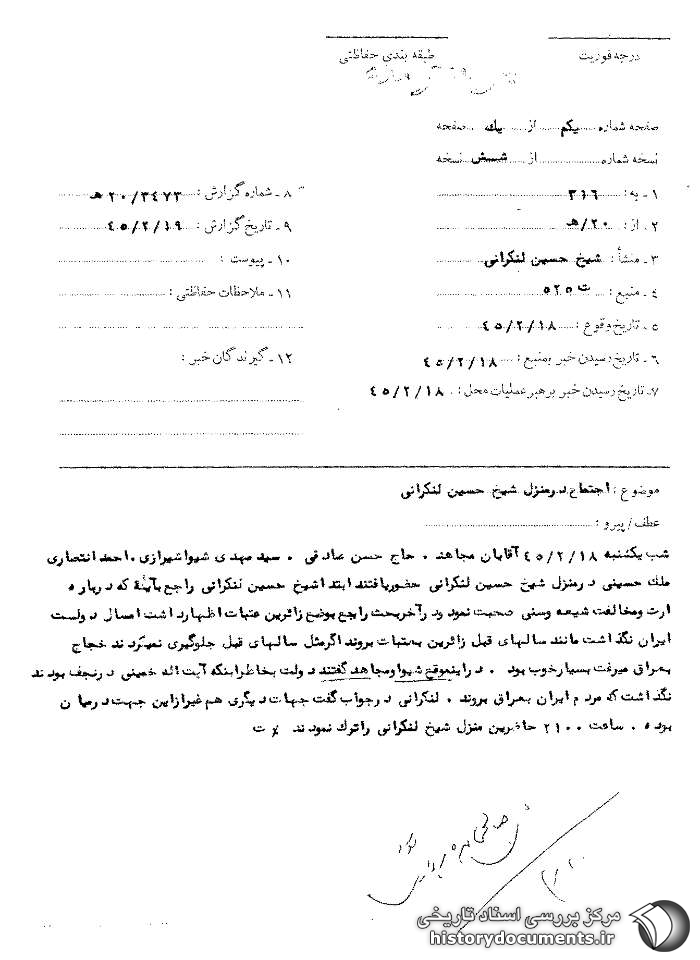 درجه فوریت
طبقه بندی حفاظتی
صفحه شماره یکم از یک صفحه
نسخه شماره از شش نسخه
۱ـ به : ۳۱۶
۲ـ از : ۲۰/هـ
۳ـ منشأ : شیخ حسین لنکرانی
۴ـ منبع : ت ۵۲۵
۵ـ تاریخ وقوع : ۴۵/۲/۱۸
۶ـ تاریخ رسیدن خبر بمنبع : ۴۵/۲/۱۸
۷ـ تاریخ رسیدن خبر برهبر عملیات محل : ۴۵/۲/۱۸
۸ـ شماره گزارش : ۲۰/۳۴۷۳ هـ
۹ـ تاریخ گزارش : ۴۵/۲/۱۹
۱۰ـ پیوست :
۱۱ـ ملاحظات حفاظتی :
۱۲ـ گیرندگان خبر :
موضوع : اجتماع در منزل شیخ حسین لنکرانی
عطف / پیرو :
شب یکشنبه ۴۵/۲/۱۸ آقایان مجاهد . حاج حسن صادقی . سید مهدی شیوا شیرازی . احمد انتصاری
ملک حسینی در منزل شیخ حسین لنکرانی حضور یافتند ابتدا شیخ حسین لنکرانی راجع بآیه که درباره
ارث و مخالفت شیعه و سنی صحبت نمود و در آخر بحث راجع بوضع زائرین عتبات اظهار داشت امسال دولت
ایران نگذاشت مانند سالهای قبل زائرین به عتبات بروند اگر مثل سالهای قبل جلوگیری نمیکردند حجاج
بعراق میرفت بسیار خوب بود . در اینموقع شیوا و مجاهد گفتند دولت بخاطر اینکه آیت اله خمینی در نجف بودند
نگذاشت که مردم ایران بعراق بروند . لنکرانی در جواب گفت جهات دیگری هم غیر از این جهت در میان
بوده . ساعت ۲۱۰۰ حاضرین منزل شیخ لنکرانی را ترک نمودند ٪ ت
مرکز بررسی اسناد تاریخی
historydocuments.ir